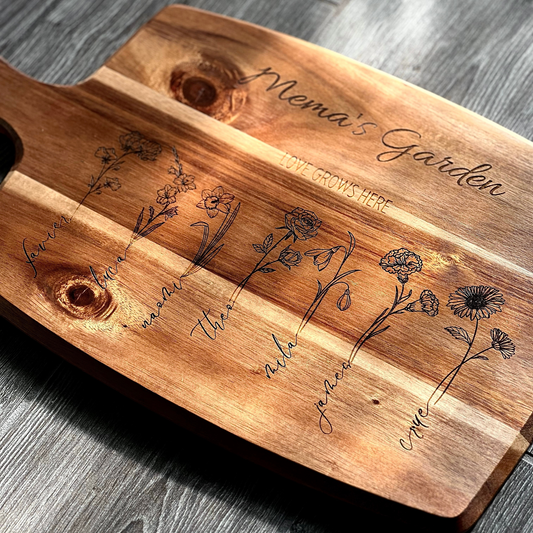 Mema's Garden
LOVE GROWS HERE
lucia
naomi
theo
mila
james